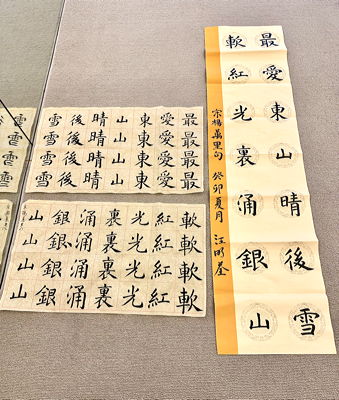 最愛東山晴後雪
軟紅光裏涌銀山
宋楊萬里句 癸卯夏月
最愛東山晴後雪
最愛東山晴後雪
最愛東山晴後雪
最愛東山晴後雪
軟紅光裏涌銀山
軟紅光裏涌銀山
軟紅光裏涌銀山
軟紅光裏涌銀山